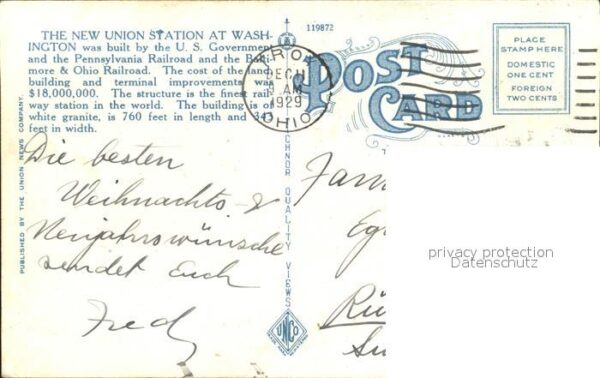 THE NEW UNION STATION AT WASH-
INGTON was built by the U. S. Government
and the Pennsylvania Railroad and the Balti-
more & Ohio Railroad. The cost of the land,
building and terminal improvements was
$18,000,000. The structure is the finest rail-
way station in the world. The building is of
white granite, is 760 feet in length and 343
feet in width.
119872
DEC 11
AM
1929
OHIO
POST
CARD
PLACE
STAMP HERE
DOMESTIC
ONE CENT
FOREIGN
TWO CENTS
PUBLISHED BY THE UNION NEWS COMPANY.
CHNOR QUALITY VIEWS
UNCO
Die besten
Weihnachts- &
Neujahrswünsche
sendet Euch
Fredy
Fam
Eg
Rü
privacy protection
Datenschutz